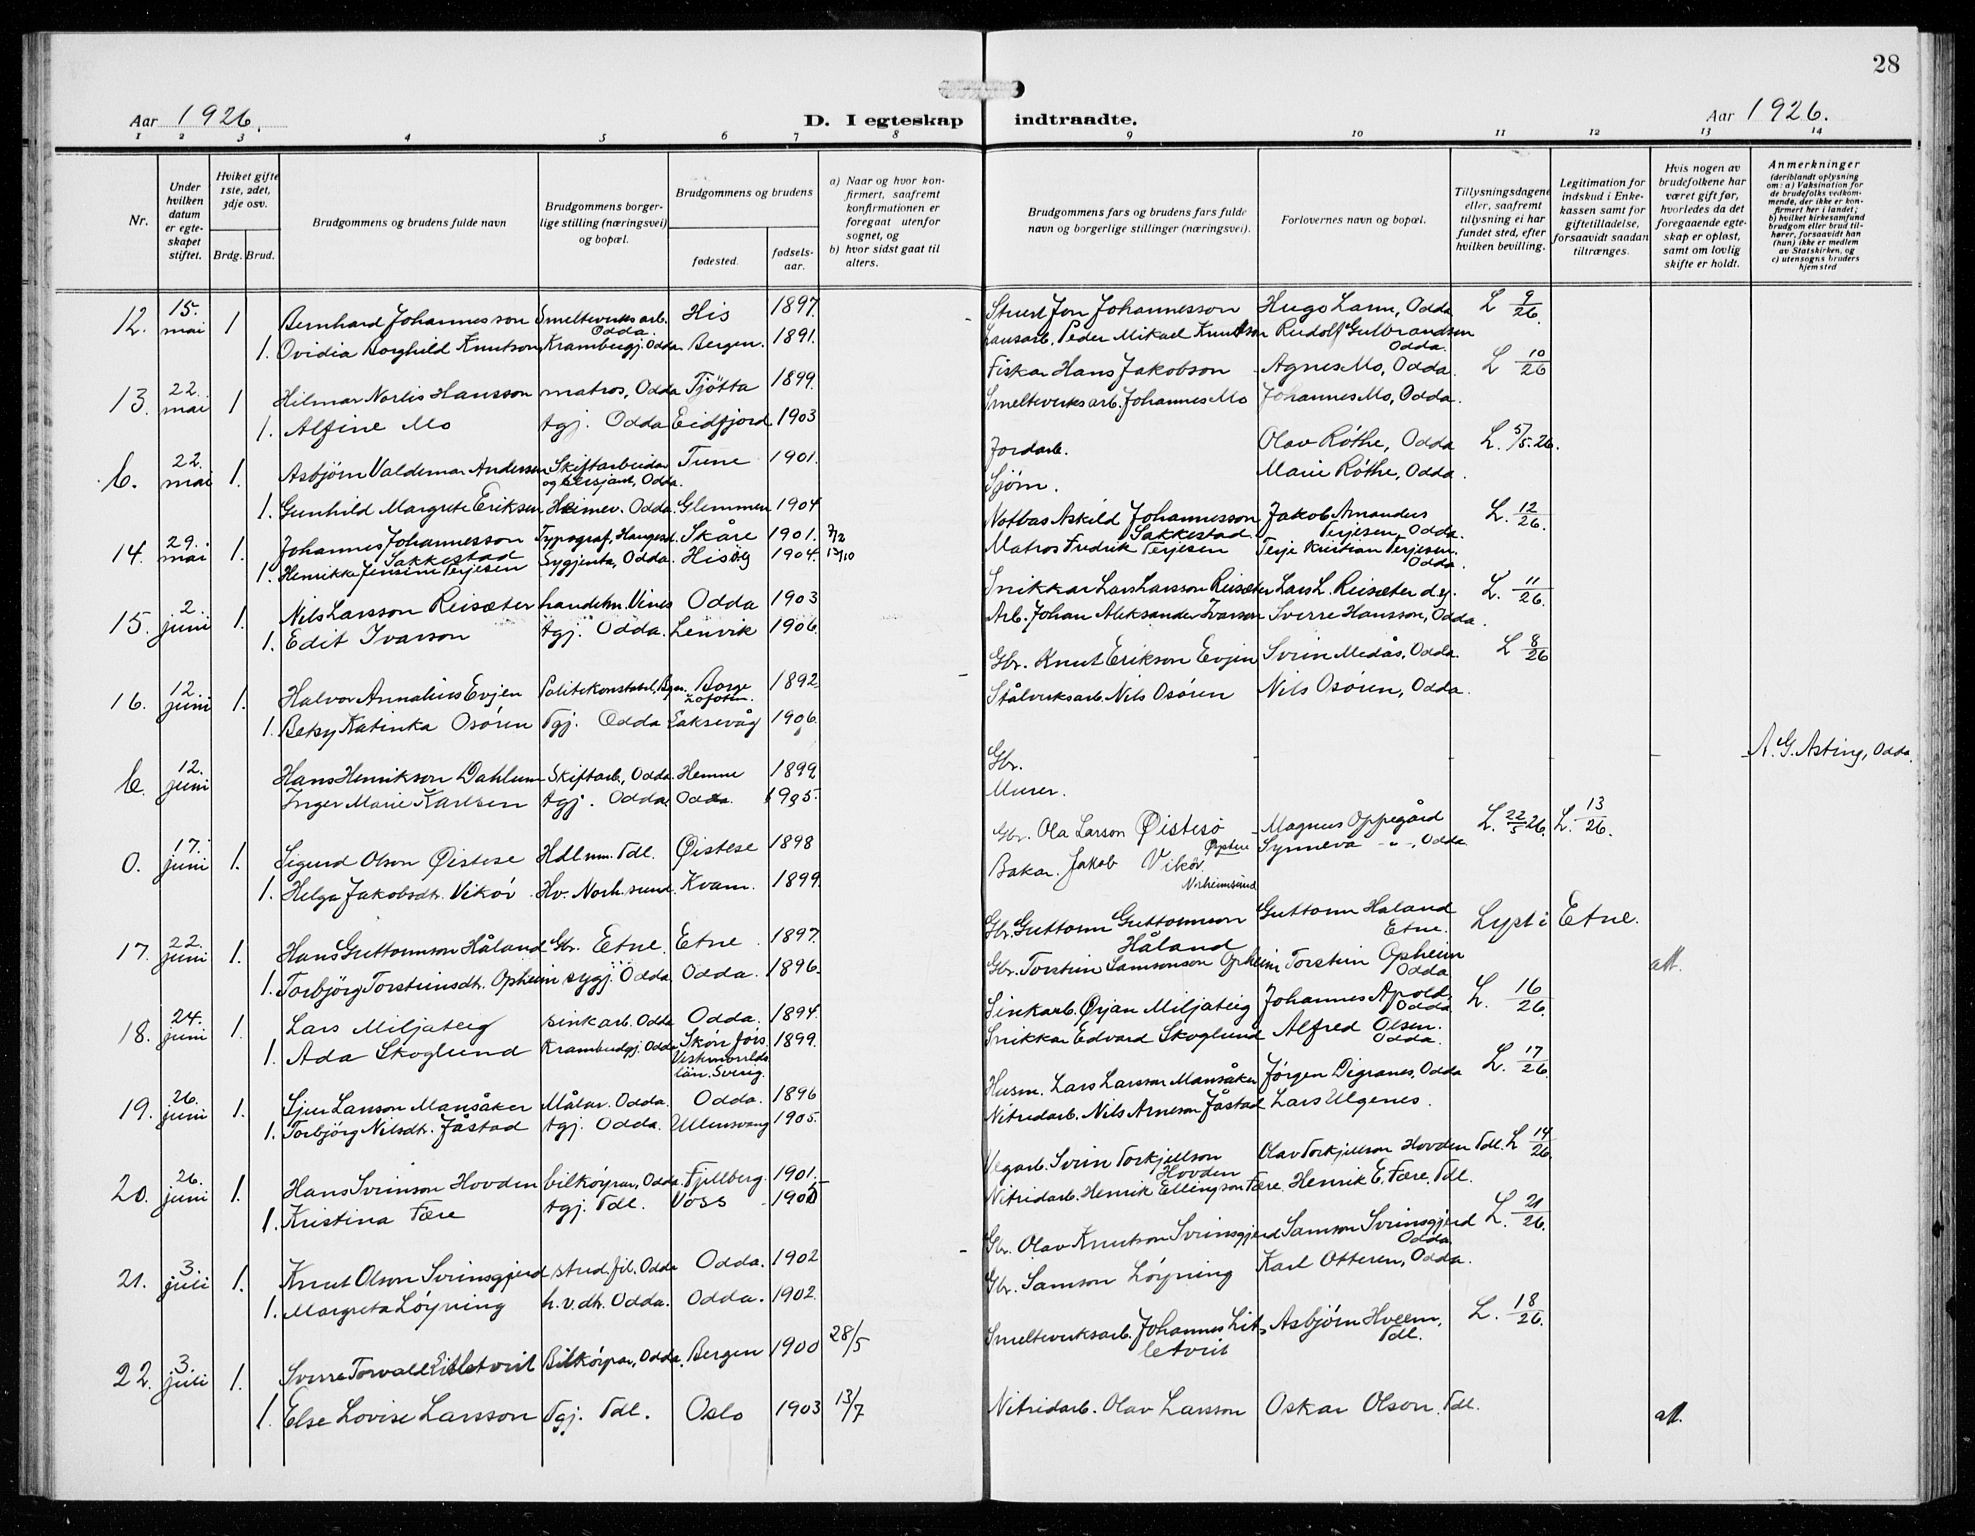 28
Aar 1926.
D. I egteskap indtraadte.
Aar 1926.
1 2 3 4 5 6 7 8 9 10 11 12 13 14
Nr.
Under hvilken datum er egteskapet stiftet.
Hviket gifte 1ste, 2det, 3dje osv.
Brdg. Brud.
Brudgommens og brudens fulde navn
Brudgommens borgerlige stilling (næringsvei) og bopæl.
Brudgommens og brudens
fødested.
fødselsaar.
a) Naar og hvor konfirmert, saafremt konfirmationen er foregaat utenfor sognet, og
b) hvor sidst gaat til alters.
Brudgommens fars og brudens fars fulde navn og borgerlige stillinger (næringsvei).
Forlovernes navn og bopæl.
Tillysningsdagene eller, saafremt tillysning ei har fundet sted, efter hvilken bevilling.
Legitimation for indskud i Enkekassen samt for giftetilladelse, forsaavidt saadan tiltrænges.
Hvis nogen av brudefolkene har været gift før, hvorledes da det foregaaende egteskap er opløst, samt om lovlig skifte er holdt.
Anmerkninger
(deriblandt oplysning om: a) Vaksination for de brudefolks vedkommende, der ikke er konfirmert her i landet; b) hvilket kirkesamfund brudgom eller brud tilhører, forsaavidt han (hun) ikke er medlem av Statskirken, og c) utensogns bruders hjemsted
12. 15. mai 1 Bernhard Johannesson Smelteverksarb. Odda. His 1897. Stuert Jon Johannesson Hugo Larm, Odda L 9/26.
1. Ovidia Borghild Knutson, Krambugj. Odda Bergen. 1891. Lausarb. Peder Mikael Knutson Rudolf Gulbrandsen Odda.
13. 22. mai 1 Hilmar Norlis Hansson matros, Odda Tjøtta 1899. Fiskar Hans Jakobson Agnes Mo, Odda. L 10/26
1. Alfine Mo tgj. Odda Eidfjord 1903 Smelteverksarb. Johannes Mo Johannes Mo, Odda.
b. 22. mai 1. Asbjørn Valdemar Andersen Skiftarbeidar Odda. Tune 1901. Jordarb. Olav Røthe, Odda L. 5/5. 26.
1. Gunhild Margrete Eriksen Heimev. Odda. Glemmen 1904 Sjøm. Marie Røthe, Odda.
14. 29. mai 1. Johannes Johannesson Sakkestad Typograf, Haugesd. Skåre 1901. 7/2 Notbas Askild Johannesson Sakkestad Jakob Amandus Terjesen, Odda. L. 12/26.
1. Henrikka Jensine Terjesen Sygjenta, Odda. Hisøy 1904. 12/10 Matros Fredrik Terjesen Terje Kristian Terjesen. Odda.
15. 2. juni 1. Nils Larsson Reisæter handelm. Vines Odda 1903 Snikkar Lars Larsson Reisæter Lars L. Reisæter d.y. L. 11/26.
1. Edit Ivarson tgj. Odda. Lenvik 1906. Arb. Johan Aleksander Ivarson Sverre Hansson, Odda.
16. 12. juni 1. Halvor Annanias Evjen Politikonstabel, Bgn. Borge Lofoten. 1892. Gbr. Knut Erikson Evjen Svein Medås, Odda. L 8/26
1. Betsy Katinka Osøren Tgj. Odda Laksevåg 1906. Stålverksarb. Nils Osøren Nils Osøren, Odda.
b. 12. juni Hans Henrikson Dahlum Skiftarb., Odda. Hemne 1899 Gbr. A. G. Asting, Odda.
Inger Marie Karlsen tgj. Odda Odda. 1905. Murer.
0. 17. juni 1. Sigurd Olson Øistese Hdlm. Tdl. Øistese 1898 Gbr. Ola Larson Øistesø Magnus Oppegård L. 22/5 26. L. 13/26.
1. Helga Jakobsdtr. Vikør Hv. Norh.sund. Kvam. 1899. Bakar. Jakob Vikør. Norheimsund Synneva -"-, Odda
17. 22. juni 1. Hans Guttormson Håland Gbr. Etne. Etne 1897. Gbr. Guttorm Guttormson Håland Guttorm Håland Etne. Lyst i Etne.
1. Torbjørg Torsteinsdtr. Opheim sygj. Odda Odda. 1896. Gbr. Torstein Samsonson Opheim Torstein Opheim Odda att.
18. 24. juni 1. Lars Miljateig sinkarb. Odda Odda. 1894. Sinkarb. Ørjan Miljateig Johannes Apold Odda L. 16/26.
1. Ada Skoglund Krambudgj. Odda Skøn førs. Vesternorrlds. län. Sverig. 1899. Snikkar Edvard Skoglund Alfred Olsen. Odda.
19. 26. juni 1. Sjur Larsson Mansåker Målar. Odda. Odda. 1896 Husm. Lars Larsson Mansåker Jørgen Digranes, Odda L. 17/26.
1. Torbjørg Nilsdtr. Jåstad tgj. Odda. Ullensvang 1905. Nitridarb. Nils Arneson Jåstad Lars Ulgenes.
20. 26. juni 1. Hans Sveinson Hovden bilkøyrar, Odda. Fjellberg. 1901. Vegarb. Svein Torkjellson Hovden Olav Torkjellson Hovden Tdl. L 14/26.
1. Kristina Fære tgj. Tdl. Voss Nitridarb. Henrik Ellingson Fære. Henrik E. Fære, Tdl.
21. 3. juli 1. Knut Olson Sveinsgjerd stud. fil. Odda Odda. 1902 Gbr. Olav Knutson Sveinsgjerd Samson Sveinsgjerd Odda L. 21/26.
1. Margreta Løyning h.v.dtr. Odda. Odda. 1902. Gbr. Samson Løyning Karl Otteren, Odda.
22. 3. juli 1. Sverre Torvald Litletveit Bilkøyrar, Odda. Bergen 1900 28/5 Smelteverksarb. Johannes Litletveit Asbjørn Hveem, Tdl. L. 18/26.
1. Else Lovise Larsson Tgj. Tdl. Oslo 1903 13/7 Nitridarb. Olav Larsson Oskar Olson, Tdl. att.